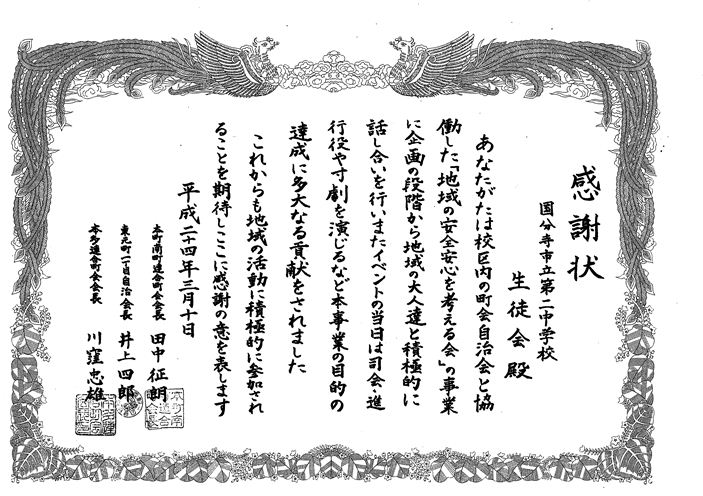 感謝状
国分寺市立第二中学校
生徒会殿
あなたがたは校区内の町会自治会と協
働した「地域の安全安心を考える会」の事業
に企画の段階から地域の大人達と積極的に
話し合いを行いまたイベントの当日は司会・進
行役や寸劇を演じるなど本事業の目的の
達成に多大なる貢献をされました
これからも地域の活動に積極的に参加され
ることを期待しここに感謝の意を表します
平成二十四年三月十日
本町南町連合町会会長 田中征朗
東元町一丁目自治会長 井上四郎
本多連合町会会長 川窪忠雄